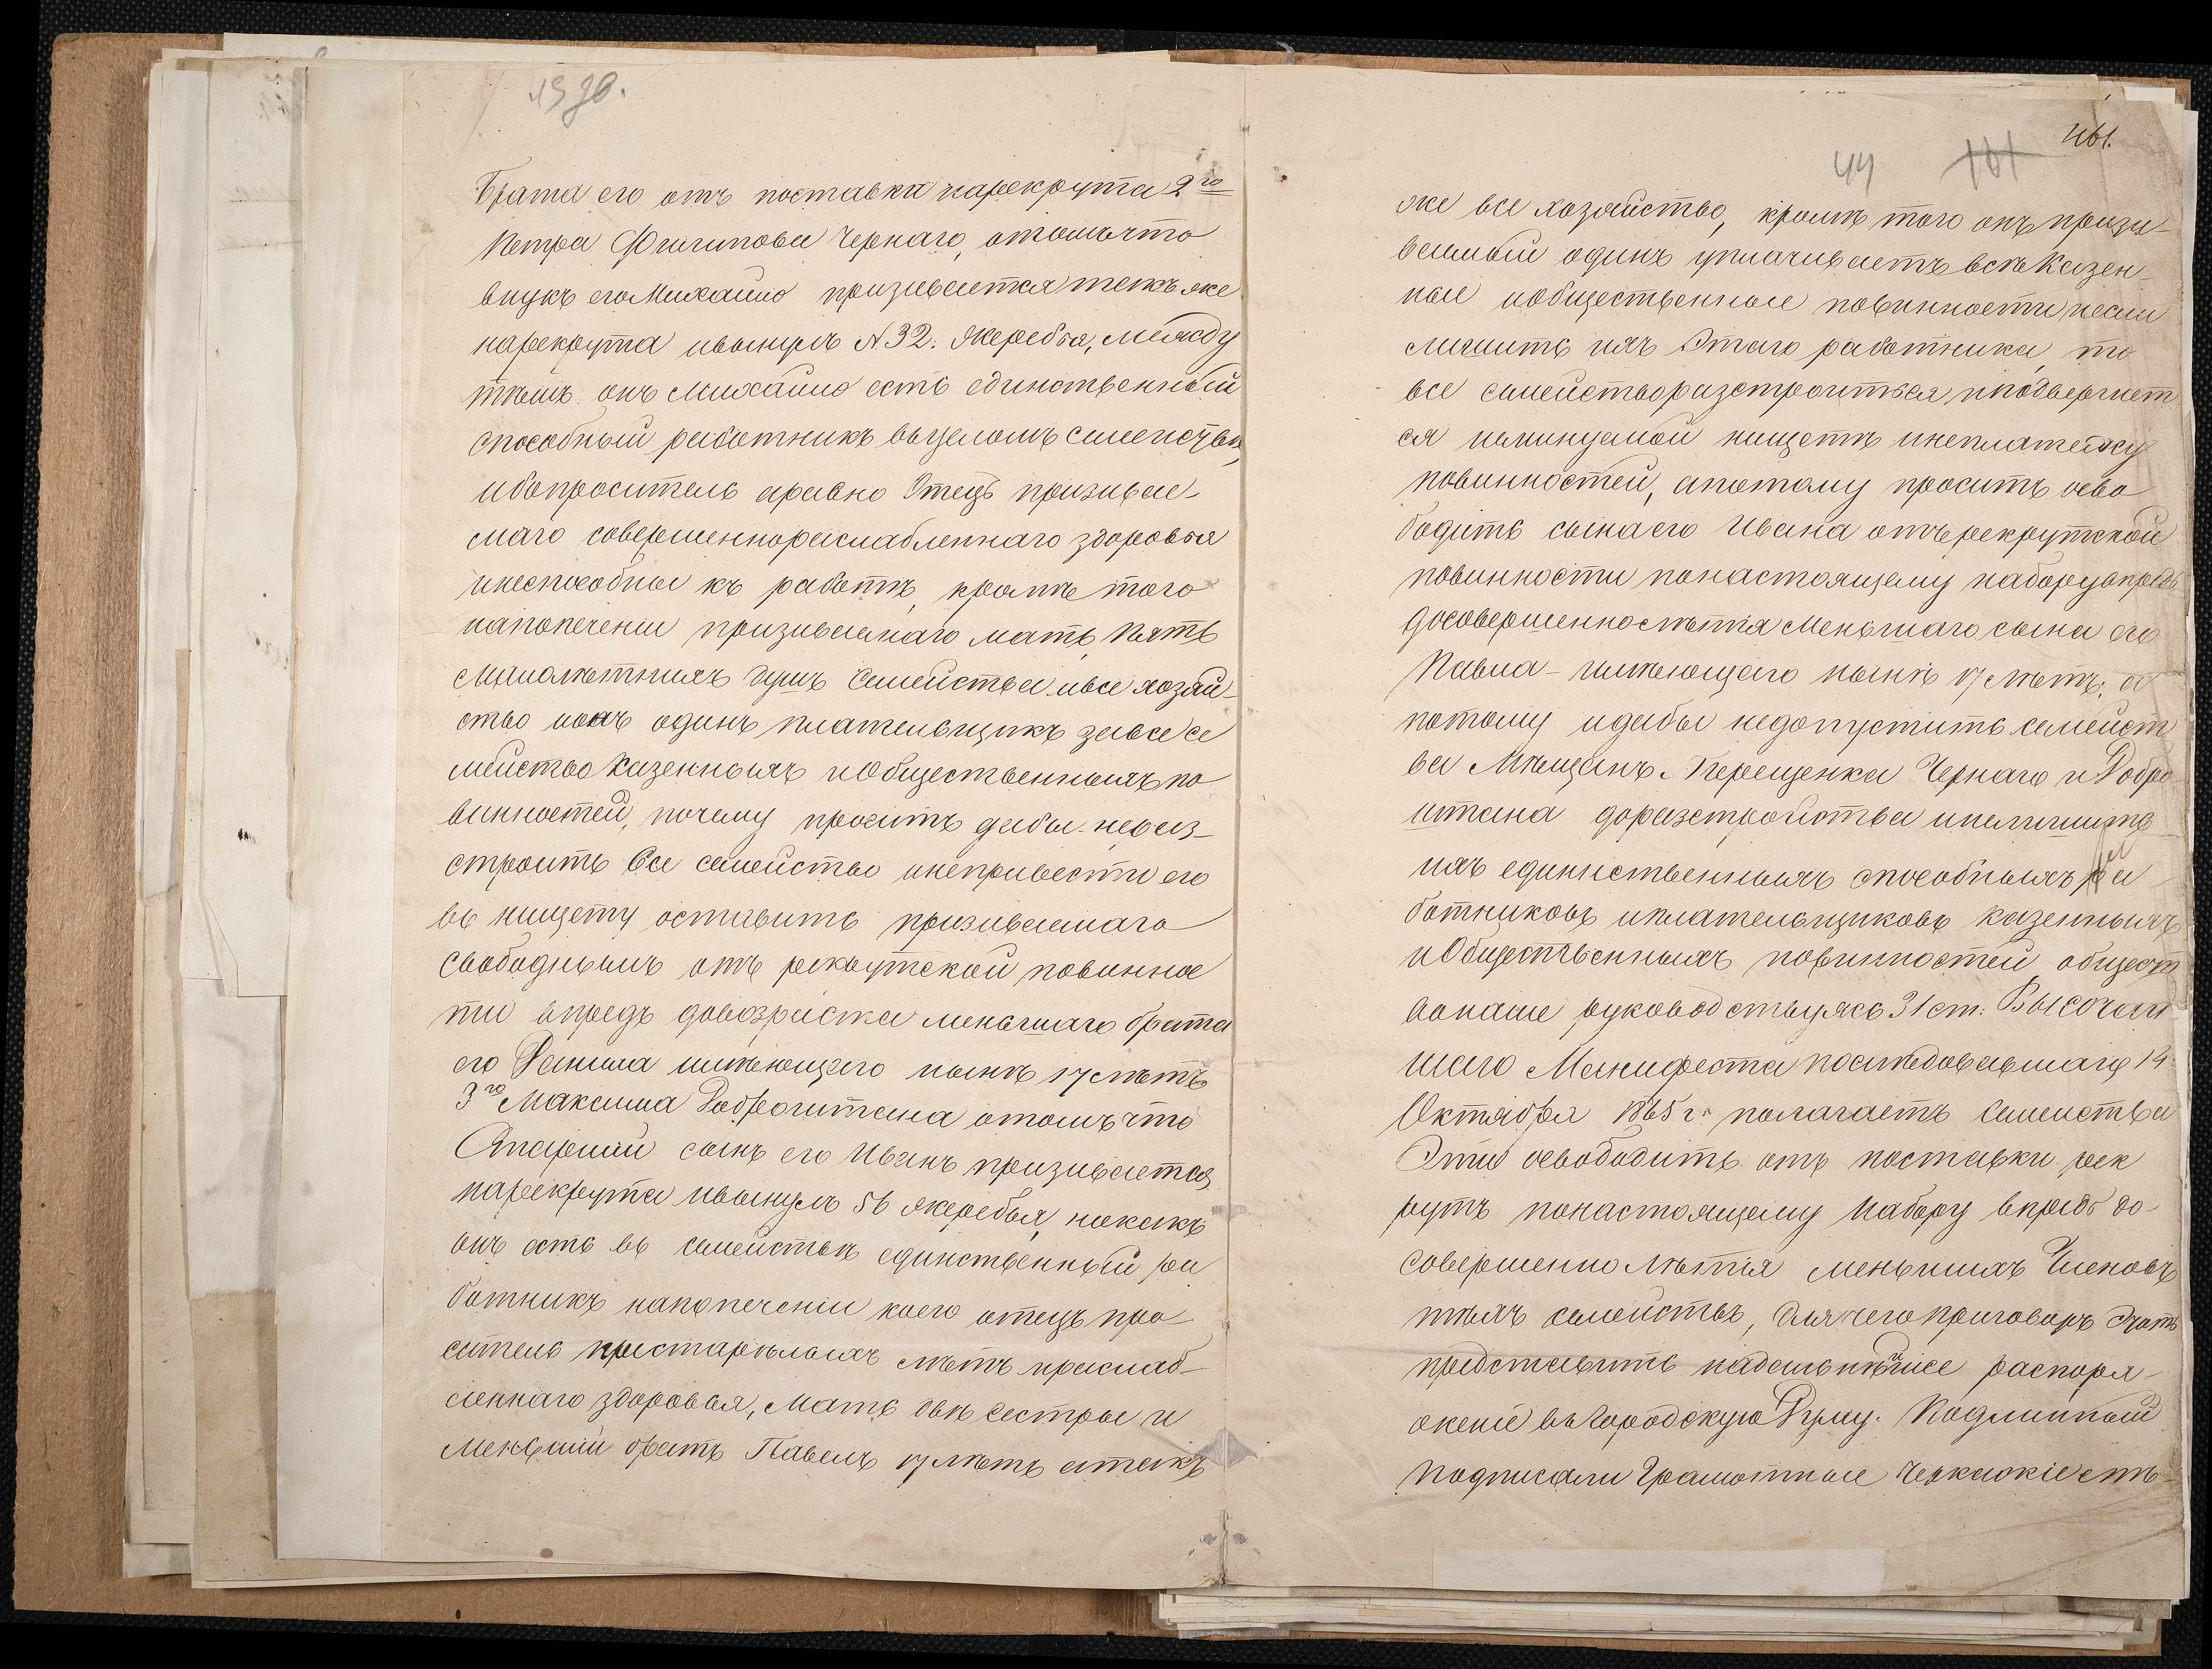 1930.
брата его отъ поставки нарекрута 2го
Петра Филипова Чернаго, отомъчто
внукъ егоМихайло призивается такъже
нарекрута ивынулъ №32. Жеребья, между
тѣмъ онъ Михайло есть единственный
способный работникъ вьцеломъ семействе,
ибопроситель аравно Отецъ призивае-
маго совершеннораслабленнаго здоровья
инеспособные къ работѣ, кроме того
напопечении призиваемаго мать, пять
Малолѣтнихъ душъ Семейства ивсе хозяй-
ство ионъ одинъ плательщикъ завсе се
мейство Казенныхъ иОбщественныхъ по
винностей, почему просить дабы неразъ-
строить Все семейство инепривести его
въ нищету оставить призиваемаго
Свободнымъ отъ рекрутской повиннос
ти впредь довозраста меньшаго брата
его Данила имѣющаго нынѣ 17 лѣтъ
3го Максима Доброштана отомъ что
Старший сынъ его Иванъ призивается
нарекрута ивынулъ 56 жеребья, накакъ
онъ есть въ семействѣ единственный ра
ботникъ напопечении коего отецъ про-
ситель престарѣлыхъ лѣтъ ираслаб-
леннаго здоровья, Мать двѣ Сестры и
Меньший братъ Павелъ 17 лѣтъ атакъ
44
161
161.
же все хозяйство, кромѣ того онъ призи-
ваемый одинъ уплачиваетъ всѣ Казен-
ные иобщественные повинности, иесли
лишить ихъ Этаго работника, то
все семейство разстроиться, иподвергнет
ся неминуемой нищетѣ инеплатежу
повинностей, апотому просить осво
бодить сынаего Ивана отърекрутской
повинности понастоящему наборувпредь
досовершеннолѣтія Меньшаго сына его
Павла - имѣющаго нынѣ 17 лѣтъ; а
потому идабы недопустить семейст
ва Мѣщанъ Перещенка Чернаго и Добро
штана доразстройства инелишить
ихъ единственныхъ способныхъ ра
ботниковъ иплательщиковъ казенныхъ
иОбщественныхъ повинностей общест
вонаше руководствуясь 31 ст: Высочай
шаго Манифеста послѣдовавшаго 14
Октября 1865 г: полагаетъ Семейства
Эти освободить отъ поставки рек
рутъ понастоящему Набору впредь до-
совершеннолѣтія меньшихъ Членовъ
тѣхъ семействъ, Для чего приговоръ Этотъ
представить надальнѣйшее распоря-
жение въ Городскую Думу. Подлинный
подписали Грамотные Черкаскіе мѣ